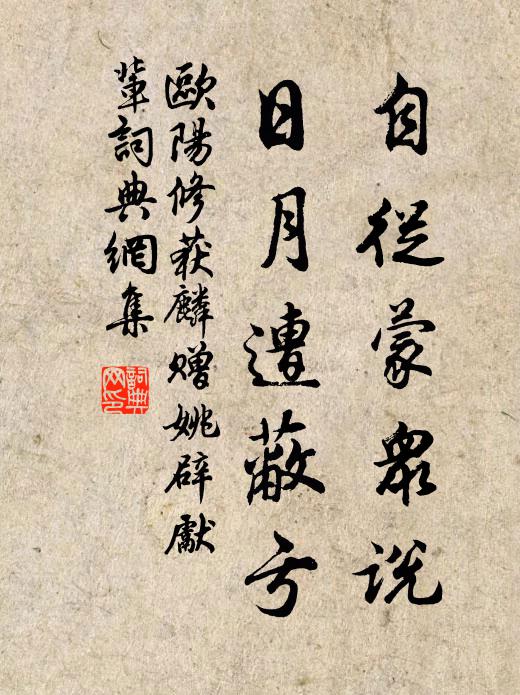 自從蒙衆說
日月遭蔽亏
歐陽修获麟贈姚辟獻
輩詞典網集
詞典网印